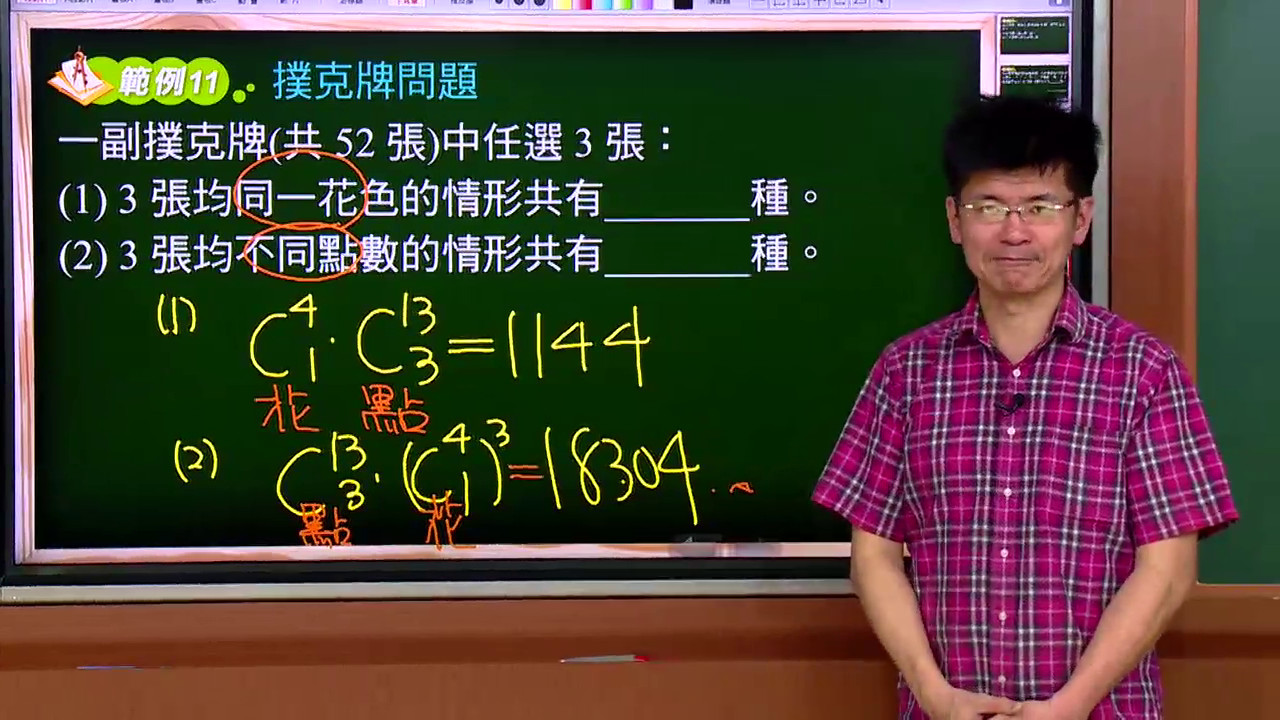 範例11 撲克牌問題
一副撲克牌(共 52 張)中任選 3 張：
(1) 3 張均同一花色的情形共有______種。
(2) 3 張均不同點數的情形共有______種。
(1) C⁴₁ · C¹³₃ = 1144
花 點
(2) C¹³₃ · (C⁴₁)³ = 18304
點 花